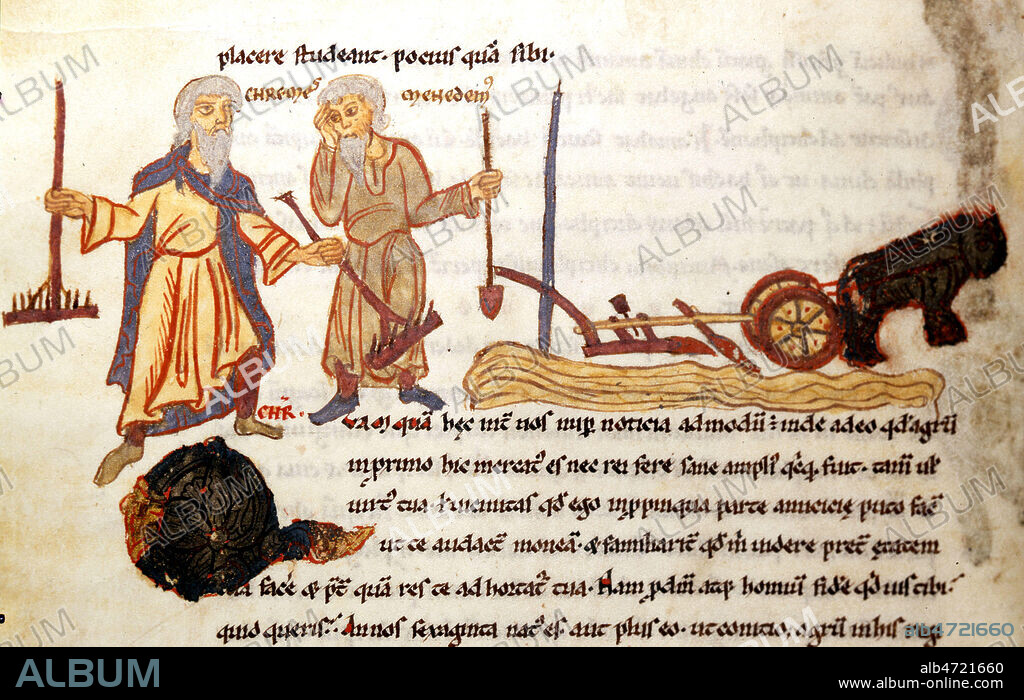 placere studeant. pocius quã sibi.
CHREMES MENEDEMꝰ
CHR̃.
uamquã hęc int̃ nos nup̃ noticia admodũ: inde adeo qd̓ agrũ
inprimo hic mercatꝰ es nec rei fere sane ampliꝰ fuit. tam̃ ul̓
uirtꝰ tua uicinitas qd̓ ego in ppinqua parte amicicię puto facit̃
ut te audact̃ moneã. & familiarit̃ qd̓ m̓ uidere pret̃ ętatem
tua facé & pret̃ quã res te ad hortat̃ tua. Nam p dm̃ atqꝫ hominũ fidẽ qd̓ uis tibi.
quid queris. Annos sexaginta natꝰ es. aut plus eo. ut conitio. agrũ inhis regi
ALBUM
alb4721660
ALBUM
alb4721660
www.album-online.com